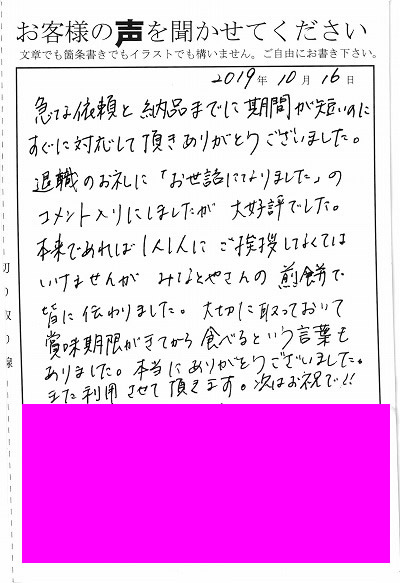 お客様の声を聞かせてください
文章でも箇条書きでもイラストでも構いません。ご自由にお書き下さい。
2019年10月16日
急な依頼と納品までに期間が短いのに
すぐに対応して頂きありがとうございました。
退職のお礼に「お世話になりました」の
コメント入りにしましたが大好評でした。
本来であれば1人1人にご挨拶しなくては
いけませんがみなとやさんの煎餅で
皆に伝わりました。大切に取っておいて
賞味期限がきてから食べるという言葉も
ありました。本当にありがとうございました。
また利用させて頂きます。次はお祝で!!
切り取り線